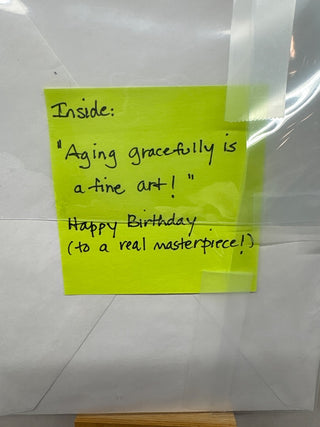 Inside:
"Aging gracefully is
a fine art! "
Happy Birthday
(to a real masterpiece!)